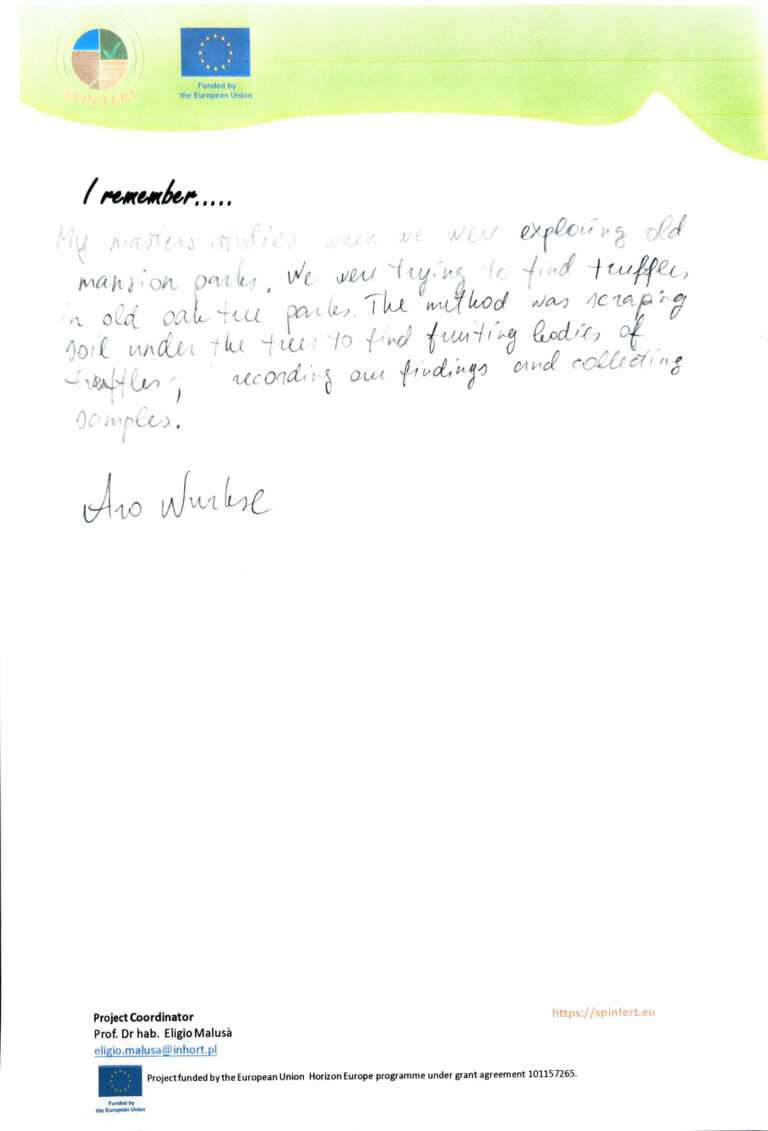 SPIN FERT
Funded by
the European Union
I remember.....
My masters studies when we were exploring old
mansion parks. We were trying to find truffles
in old oak tree parks. The method was scraping
soil under the trees to find fruiting bodies of
truffles, recording our findings and collecting
samples.
Project Coordinator
Prof. Dr hab. Eligio Malusà
eligio.malusa@inhort.pl
https://spinfert.eu
Project funded by the European Union Horizon Europe programme under grant agreement 101157265.
Funded by
the European Union